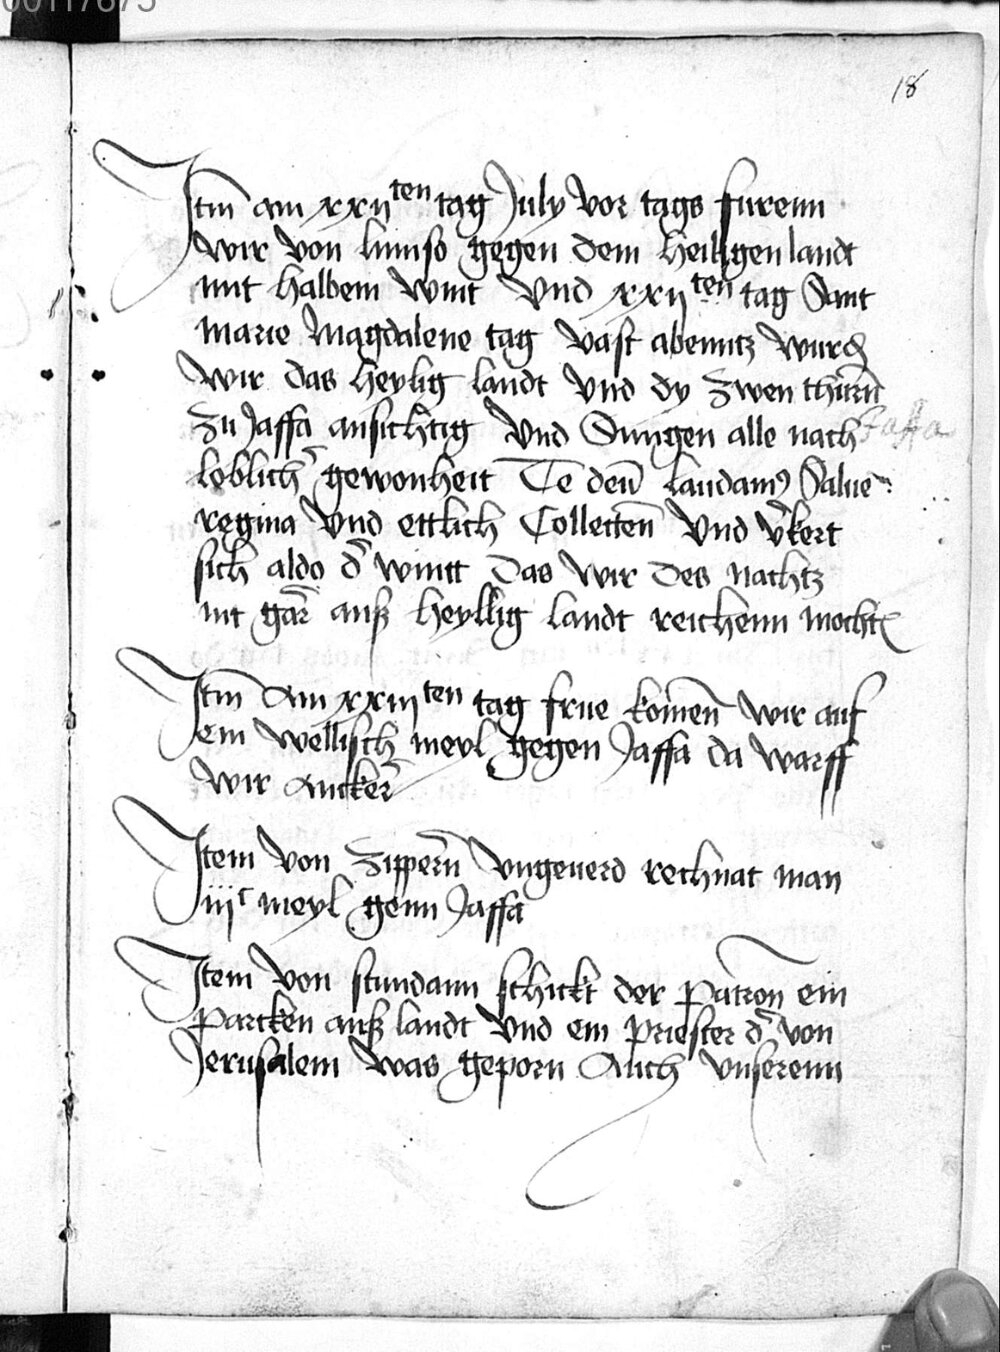 00117675
18
Itm am xxij ten tag July vor tags furenn
wir von limiso gegen dem heiligen landt
mit halbem wint vnd xxij ten tag Sant
marie Magdalene tag vast abenntz wurd
wir das heylig landt vnd dy zwen thürn
zu Jaffa ansichtig vnd Sungen alle nach
Jaffa
loblicher gewonheit Te deum laudamus Salue
regina vnd ettlich Collecten vnd v̾kert
sich aldo d̾ wintt das wir des nachtz
nit gar anß heyllig landt reichenn mocht
Itm Am xxiij ten tag frue komen wir auf
ein wellisch meyl gegen Jaffa da warff
wir Ancker
Item von Zippern vngeuerd rechnat man
iijc meyl genn Jaffa
Item von stundann schickt der Patron ein
Parcken anß landt vnd ein priester d̾ von
Jerusalem was geporn Auch vnserenn